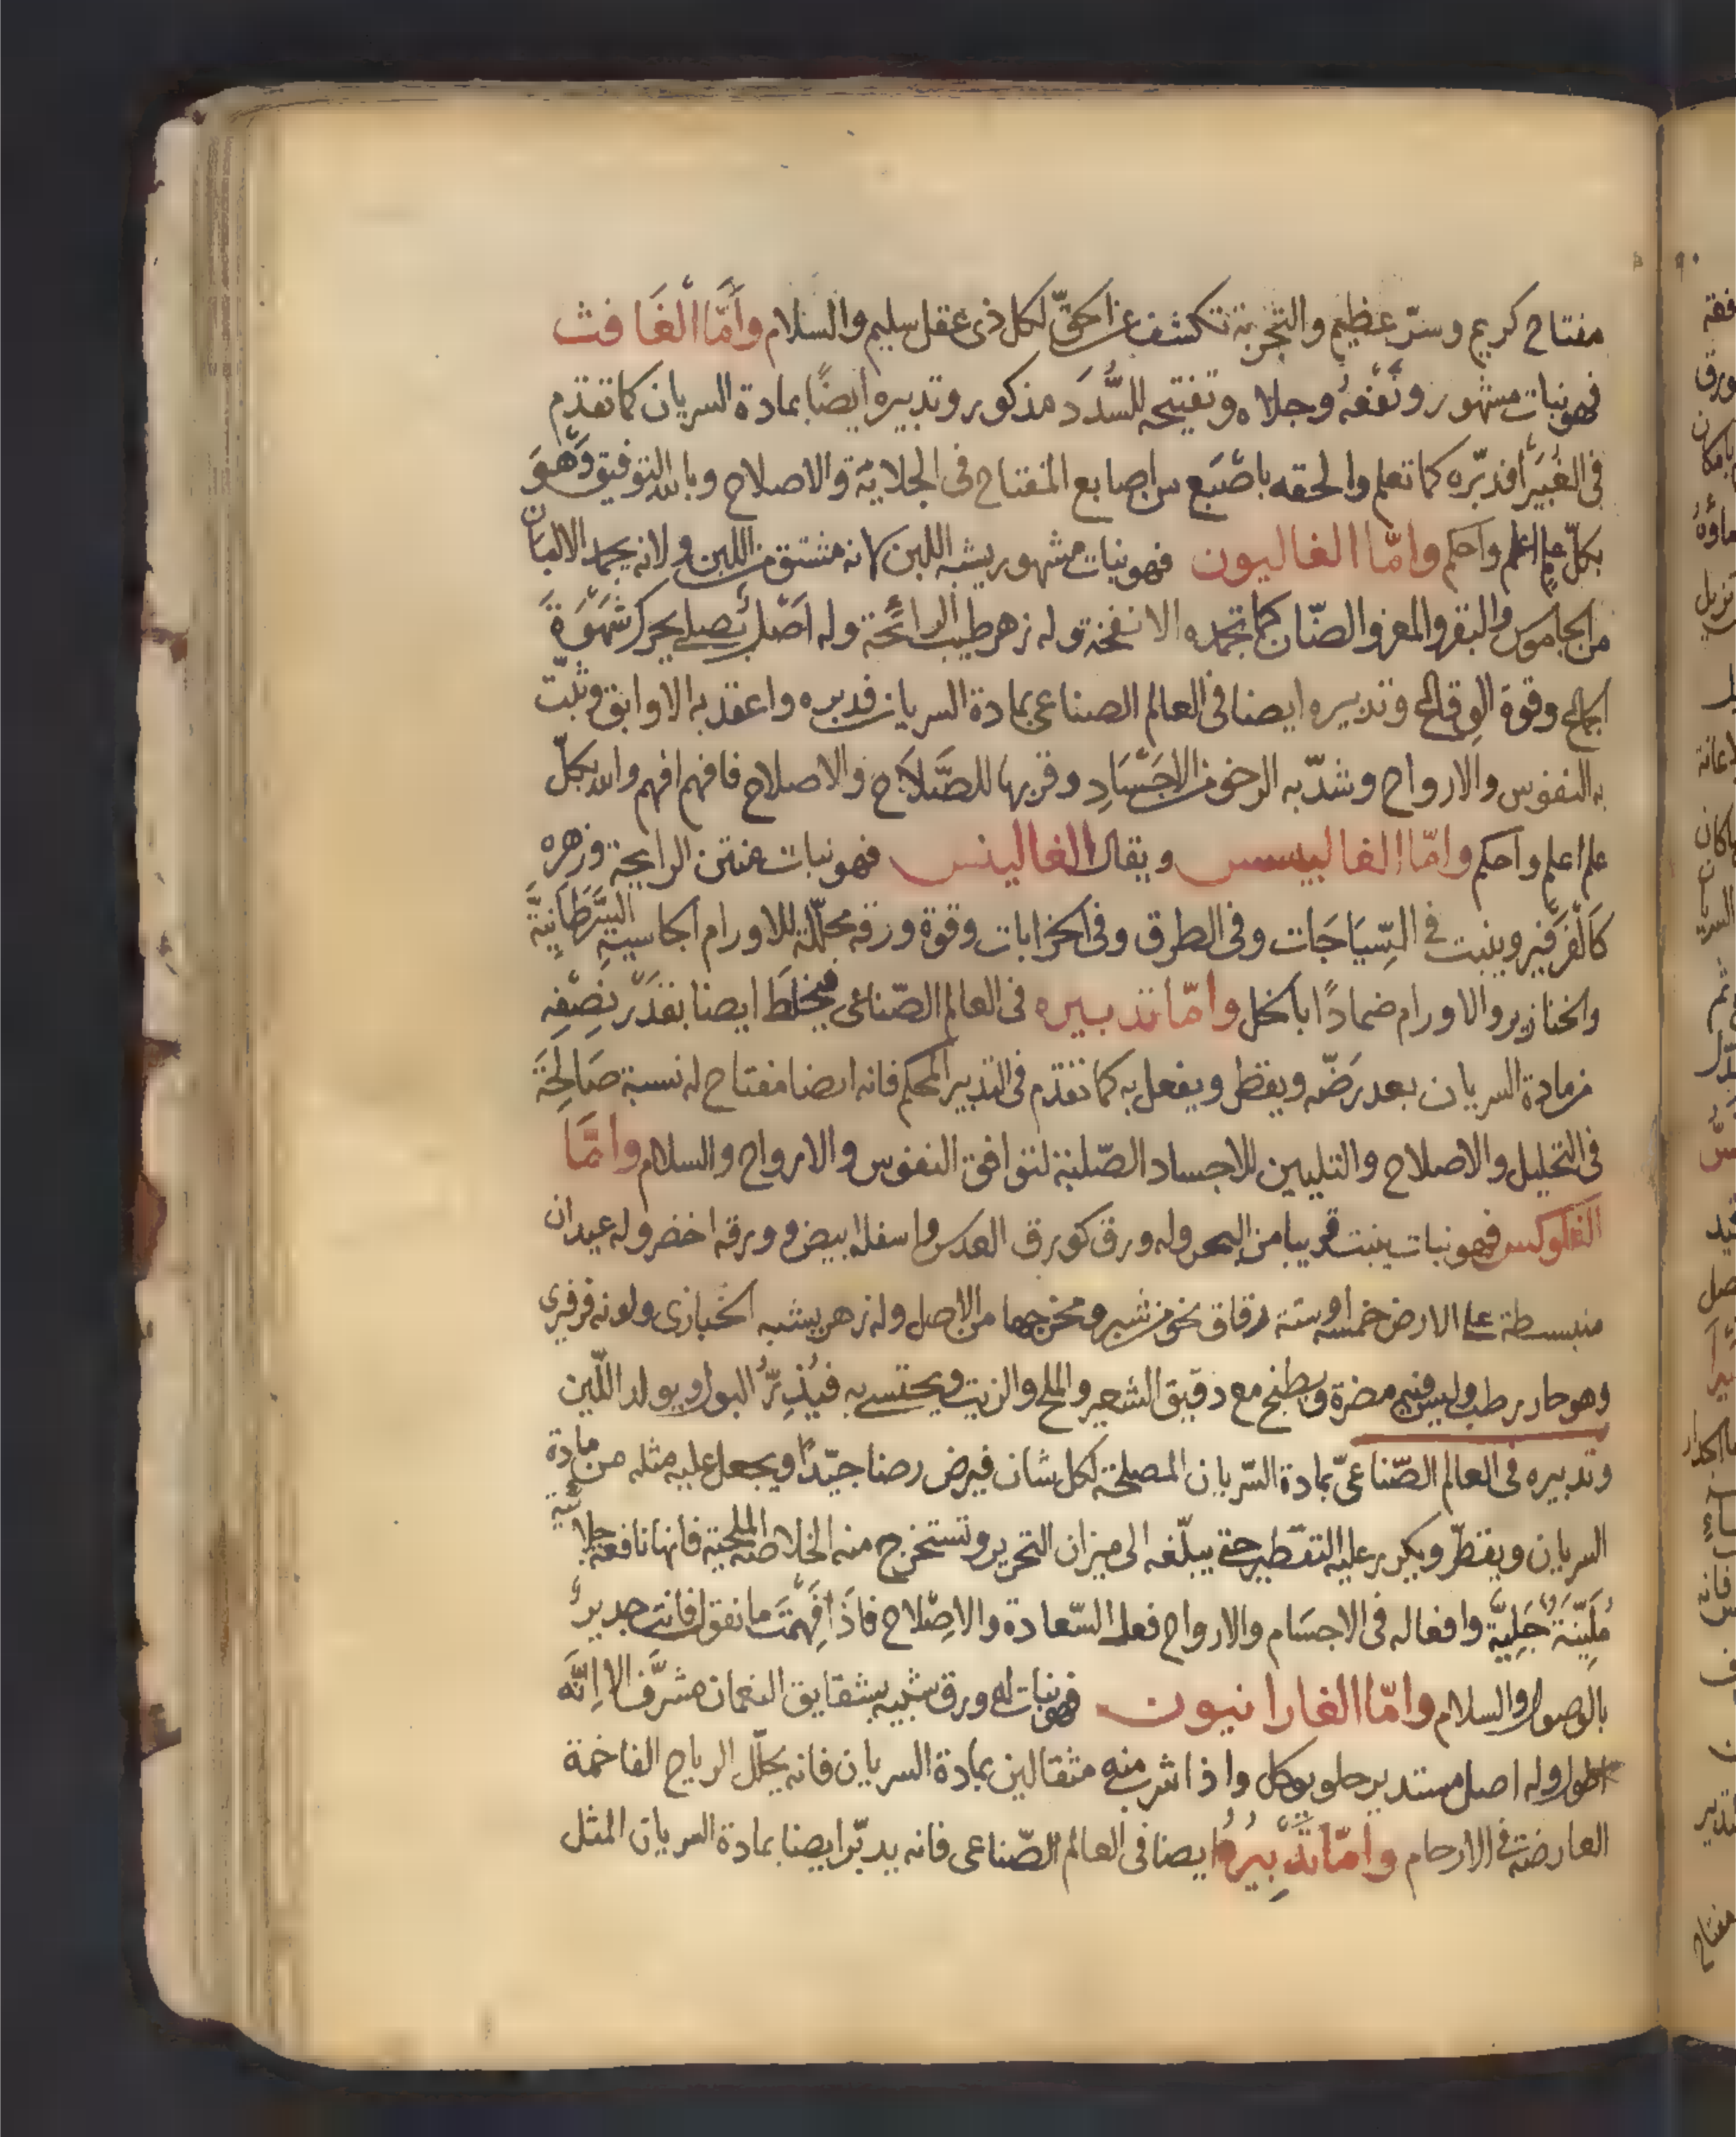 مفتاح كريم وسرّ عظيم والتجربة تكشف عن الحقّ لكل ذى عقل سليم والسلام وأمّا الغافث
فهو نبات مشهور ونفعهُ وجلاه وتفتيحه للسّدد مذكور وتدبيره ايضًا بمادة السريان كما تقدّم
فى الغبيرا فدبّره كما تعلم والحقه باصبع من اصابع المفتاح فى الجلايّة والاصلاح وبالله التوفيق وهو
بكلّ علم اعلم واحكم وامّا الغاليون فهو نبات مشهور يشبه اللبن لانه مشتق من اللبن ولانه يجمد الالبان
من الجاموس والبقر والمعز والضّان كما تجمده الانفحة وله زهر طيب الرائحة وله اصل بصلى يحرك شهوة
الجماع وقوة الوقاع وتدبيره ايضا فى العالم الصناعى بمادة السريان فدبره واعقد به الاوابق وثبّت
به النفوس والارواح وشدّ به الرخو من الاجساد وقربها للصّلاح والاصلاح فافهم افهم والله بكلّ
علم اعلم واحكم وامّا الغاليبسس ويقال الغالينس فهو نبات منتن الرايحة وزهره
كالفرفير وينبت فى السّياجات وفى الطرق وفى الخرابات وقوة ورقه محلّلة للاورام الجاسية السّرطانيّة
والخنازير والاورام ضمادًا بالخل وامّا تدبيره فى العالم الصّناعى فيخلط ايضا بقدر نصفه
من مادة السريان بعد رضّه ويقطر ويفعل به كما تقدّم فى التدبير المحكم فانه ايضا مفتاح له نسبة صالحة
فى التحليل والاصلاح والتليين للاجساد الصّلبة لتوافق النفوس والارواح والسلام وامّا
الغلوكس فهو نبات ينبت قريبا من البحر وله ورق كورق العدس واسفله ابيض وورقه اخضر وله عيدان
منبسطة على الارض خمسة او ستة رقاق نحو من شبر ومخرجها من الاصل وله زهر يشبه الخبازى ولونه فرفيرى
وهو حار رطب وليس فيه مضرة ويطبخ مع دقيق الشعير والملح والزيت ويحتسى به فيُدِرُّ البول ويولد اللّبن
وتدبيره فى العالم الصّناعىّ بمادة السّريان المصلحة لكل شان فيرض رضا جيّدًا ويجعل عليه مثله من مادة
السريان ويقطّر ويكرر عليه التقطير حتى يبلّغه الى ميزان التحرير وتستخرج منه الخلاصة الملحية فانها نافعة جلائية
مُليّنة جَليّة وافعاله فى الاجسام والارواح فعل السّعادة والاصلاح فاذا فهمت ما نقول فانت جدير
بالوصول والسلام وامّا الغارانيون فهو نبات له ورق شبيه بشقايق النعمان مشرّف الا انّه
اطول وله اصل مستدير حلو يوكل واذا شرب منه مثقالين بمادة السريان فانه يحلّل الرياح الفاخمة
العارضة فى الارحام وامّا تدبيره ايضا فى العالم الصّناعى فانه يدبّر ايضا بمادة السريان المثل